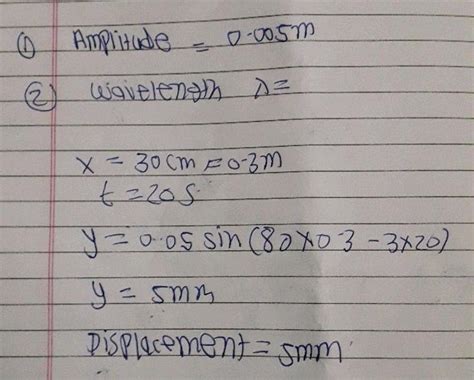 ① Amplitude = 0.005m
② wavelength λ=
x = 30cm = 0.3m
t = 20s.
y = 0.05 sin (80x0.3 - 3x20)
y = 5mm
Displacement = 5mm